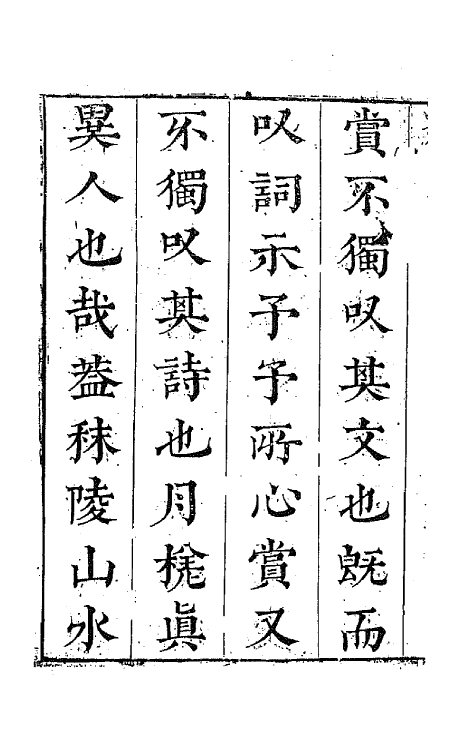 賞不獨叹其文也旣而
以詞示予予所心賞又
不獨叹其詩也月㮯眞
異人也哉葢秣陵山水